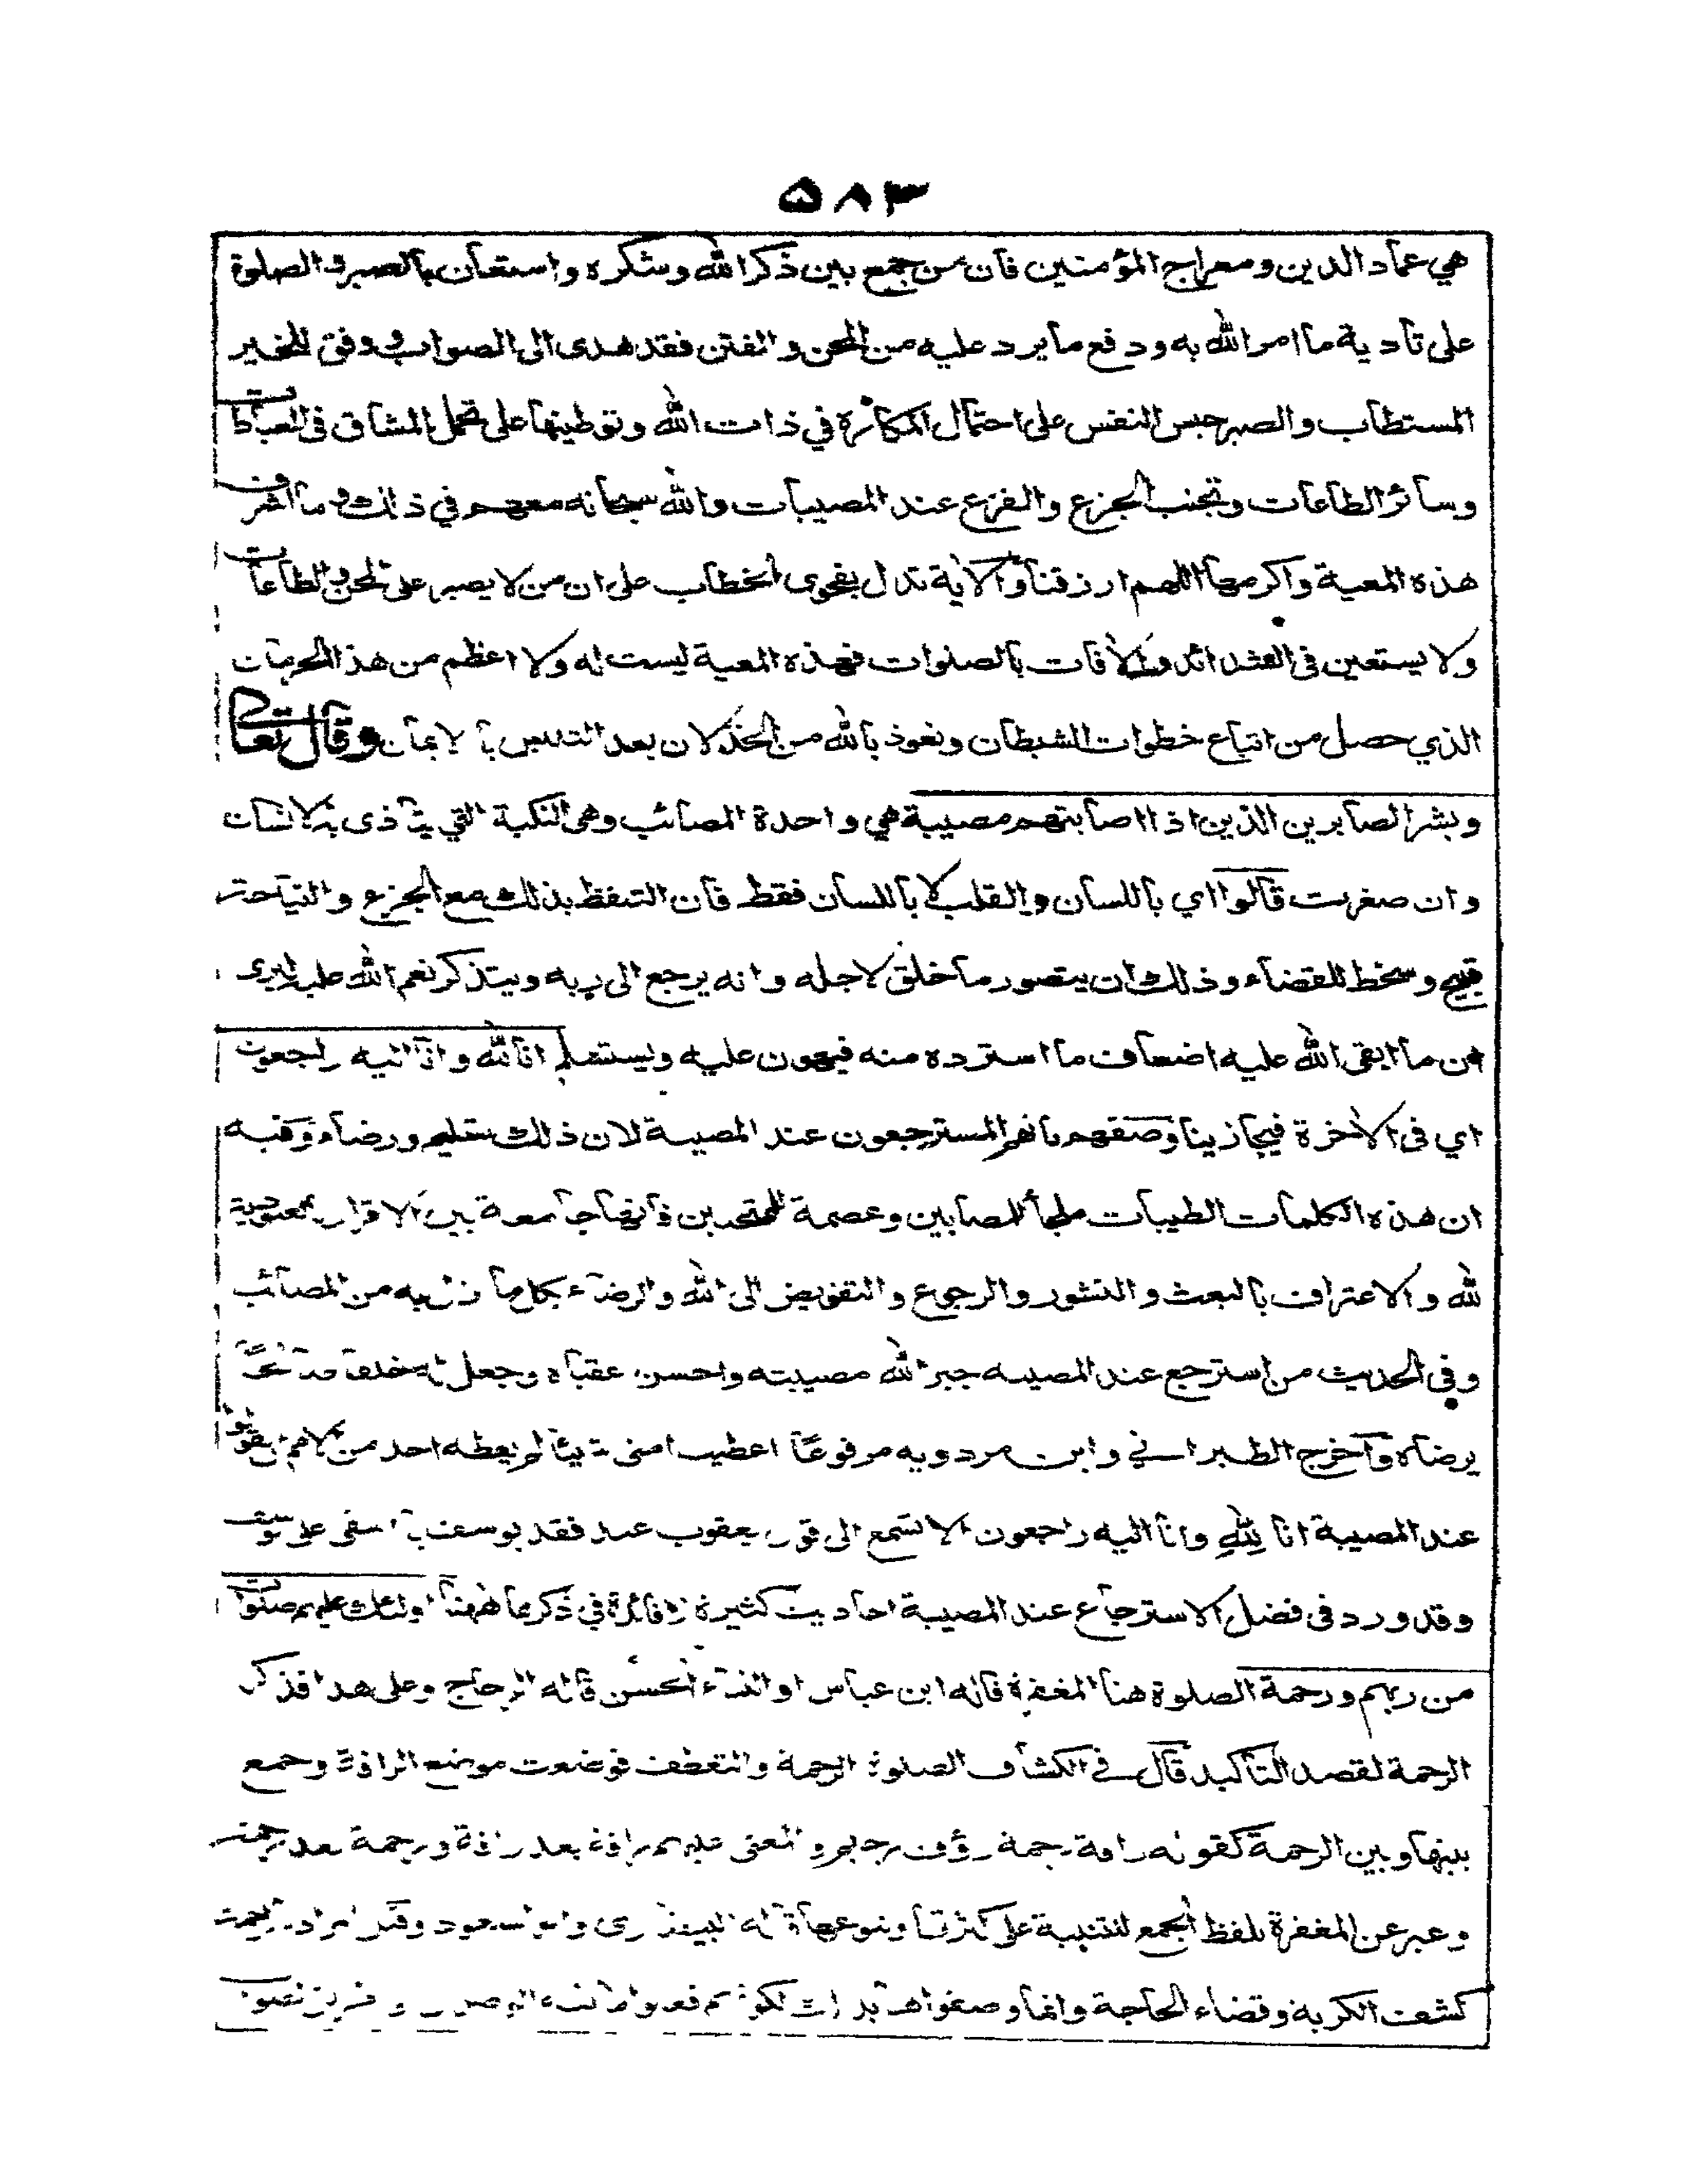 ٥٨٣
هي عماد الدين ومعراج المؤمنين فان من جمع بين ذكر الله وشكره واستعان بالصبر والصلوة
على تأدية ما امر الله به ودفع ما يرد عليه من المحن والفتن فقد هدى الى الصواب ووفق للخير
المستطاب والصبر حبس النفس على احتمال المكاره في ذات الله وتوطينها على تحمل المشاق فى العبادات
وسائر الطاعات وتجنب الجزع والفزع عند المصيبات والله سبحانه معهم في ذلك وما اشرف
هذه المعية واكرمها اللهم ارزقنا والاية تدل بفحوى الخطاب على ان من لا يصبر على المحن والطاعات
ولا يستعين فى الشدائد والأفات بالصلوات فهذه المعية ليست له ولا اعظم من هذا الحرمان
الذي حصل من اتباع خطوات الشيطان ونعوذ بالله من الخذلان بعد التلبس بالايمان وقال تعالى
وبشر الصابرين الذين اذا اصابتهم مصيبة هي واحدة المصائب وهى النكبة التي يتأذى بها الانسان
وان صغرت قالوا اي باللسان والقلب لا باللسان فقط فان التلفظ بذلك مع الجزع والنياحة
قبيح وسخط للقضاء وذلك ان يتصور ما خلق لاجله وانه يرجع الى ربه ويتذكر نعم الله عليه ليرى
ان ما ابقى الله عليه اضعاف ما استرده منه فيهون عليه ويستسلم انا لله وانا اليه راجعون
اي فى الاخرة فيجازينا وصفهم بانهم المسترجعون عند المصيبة لان ذلك تسليم ورضاء وفيه
ان هذه الكلمات الطيبات ملجأ للمصابين وعصمة للممتحنين فانها جامعة بين الاقرار بالعبودية
لله والاعتراف بالبعث والنشور والرجوع والتفويض الى الله والرضاء بكل ما نزل به من المصائب
وفي الحديث من استرجع عند المصيبة جبر الله مصيبته واحسن عقباه وجعل له خلفا صالحا
يرضاه واخرج الطبراني وابن مردويه مرفوعا اعطيت امتى شيئا لم يعطه احد من الامم ان يقولوا
عند المصيبة انا لله وانا اليه راجعون الا تسمع الى قول يعقوب عند فقد يوسف يا اسفى على يوسف
وقد ورد فى فضل الاسترجاع عند المصيبة احاديث كثيرة لا فائدة في ذكرها ههنا اولئك عليهم صلوات
من ربهم ورحمة الصلوة هنا المغفرة قاله ابن عباس او الثناء الحسن قاله الزجاج وعلى هذا فذكر
الرحمة لقصد التأكيد قال في الكشاف الصلوة الرحمة والتعطف فوضعت موضع الرافة وجمع
بينها وبين الرحمة كقوله رافة ورحمة رؤف رحيم والمعنى عليهم رافة بعد رافة ورحمة بعد رحمة
وعبر عن المغفرة بلفظ الجمع للتنبيه على كثرتها وتنوعها قاله البيضاوى وابو السعود وقيل المراد بالرحمة
كشف الكربة وقضاء الحاجة وانما وصفوا هنا بذلك لكونهم فعلوا ما فيه